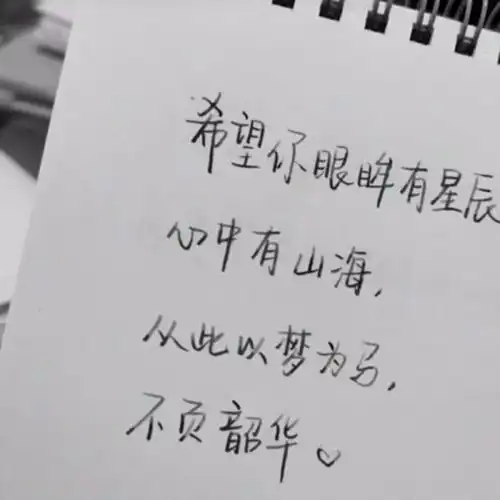 希望你眼眸有星辰
心中有山海,
从此以梦为马,
不负韶华♡